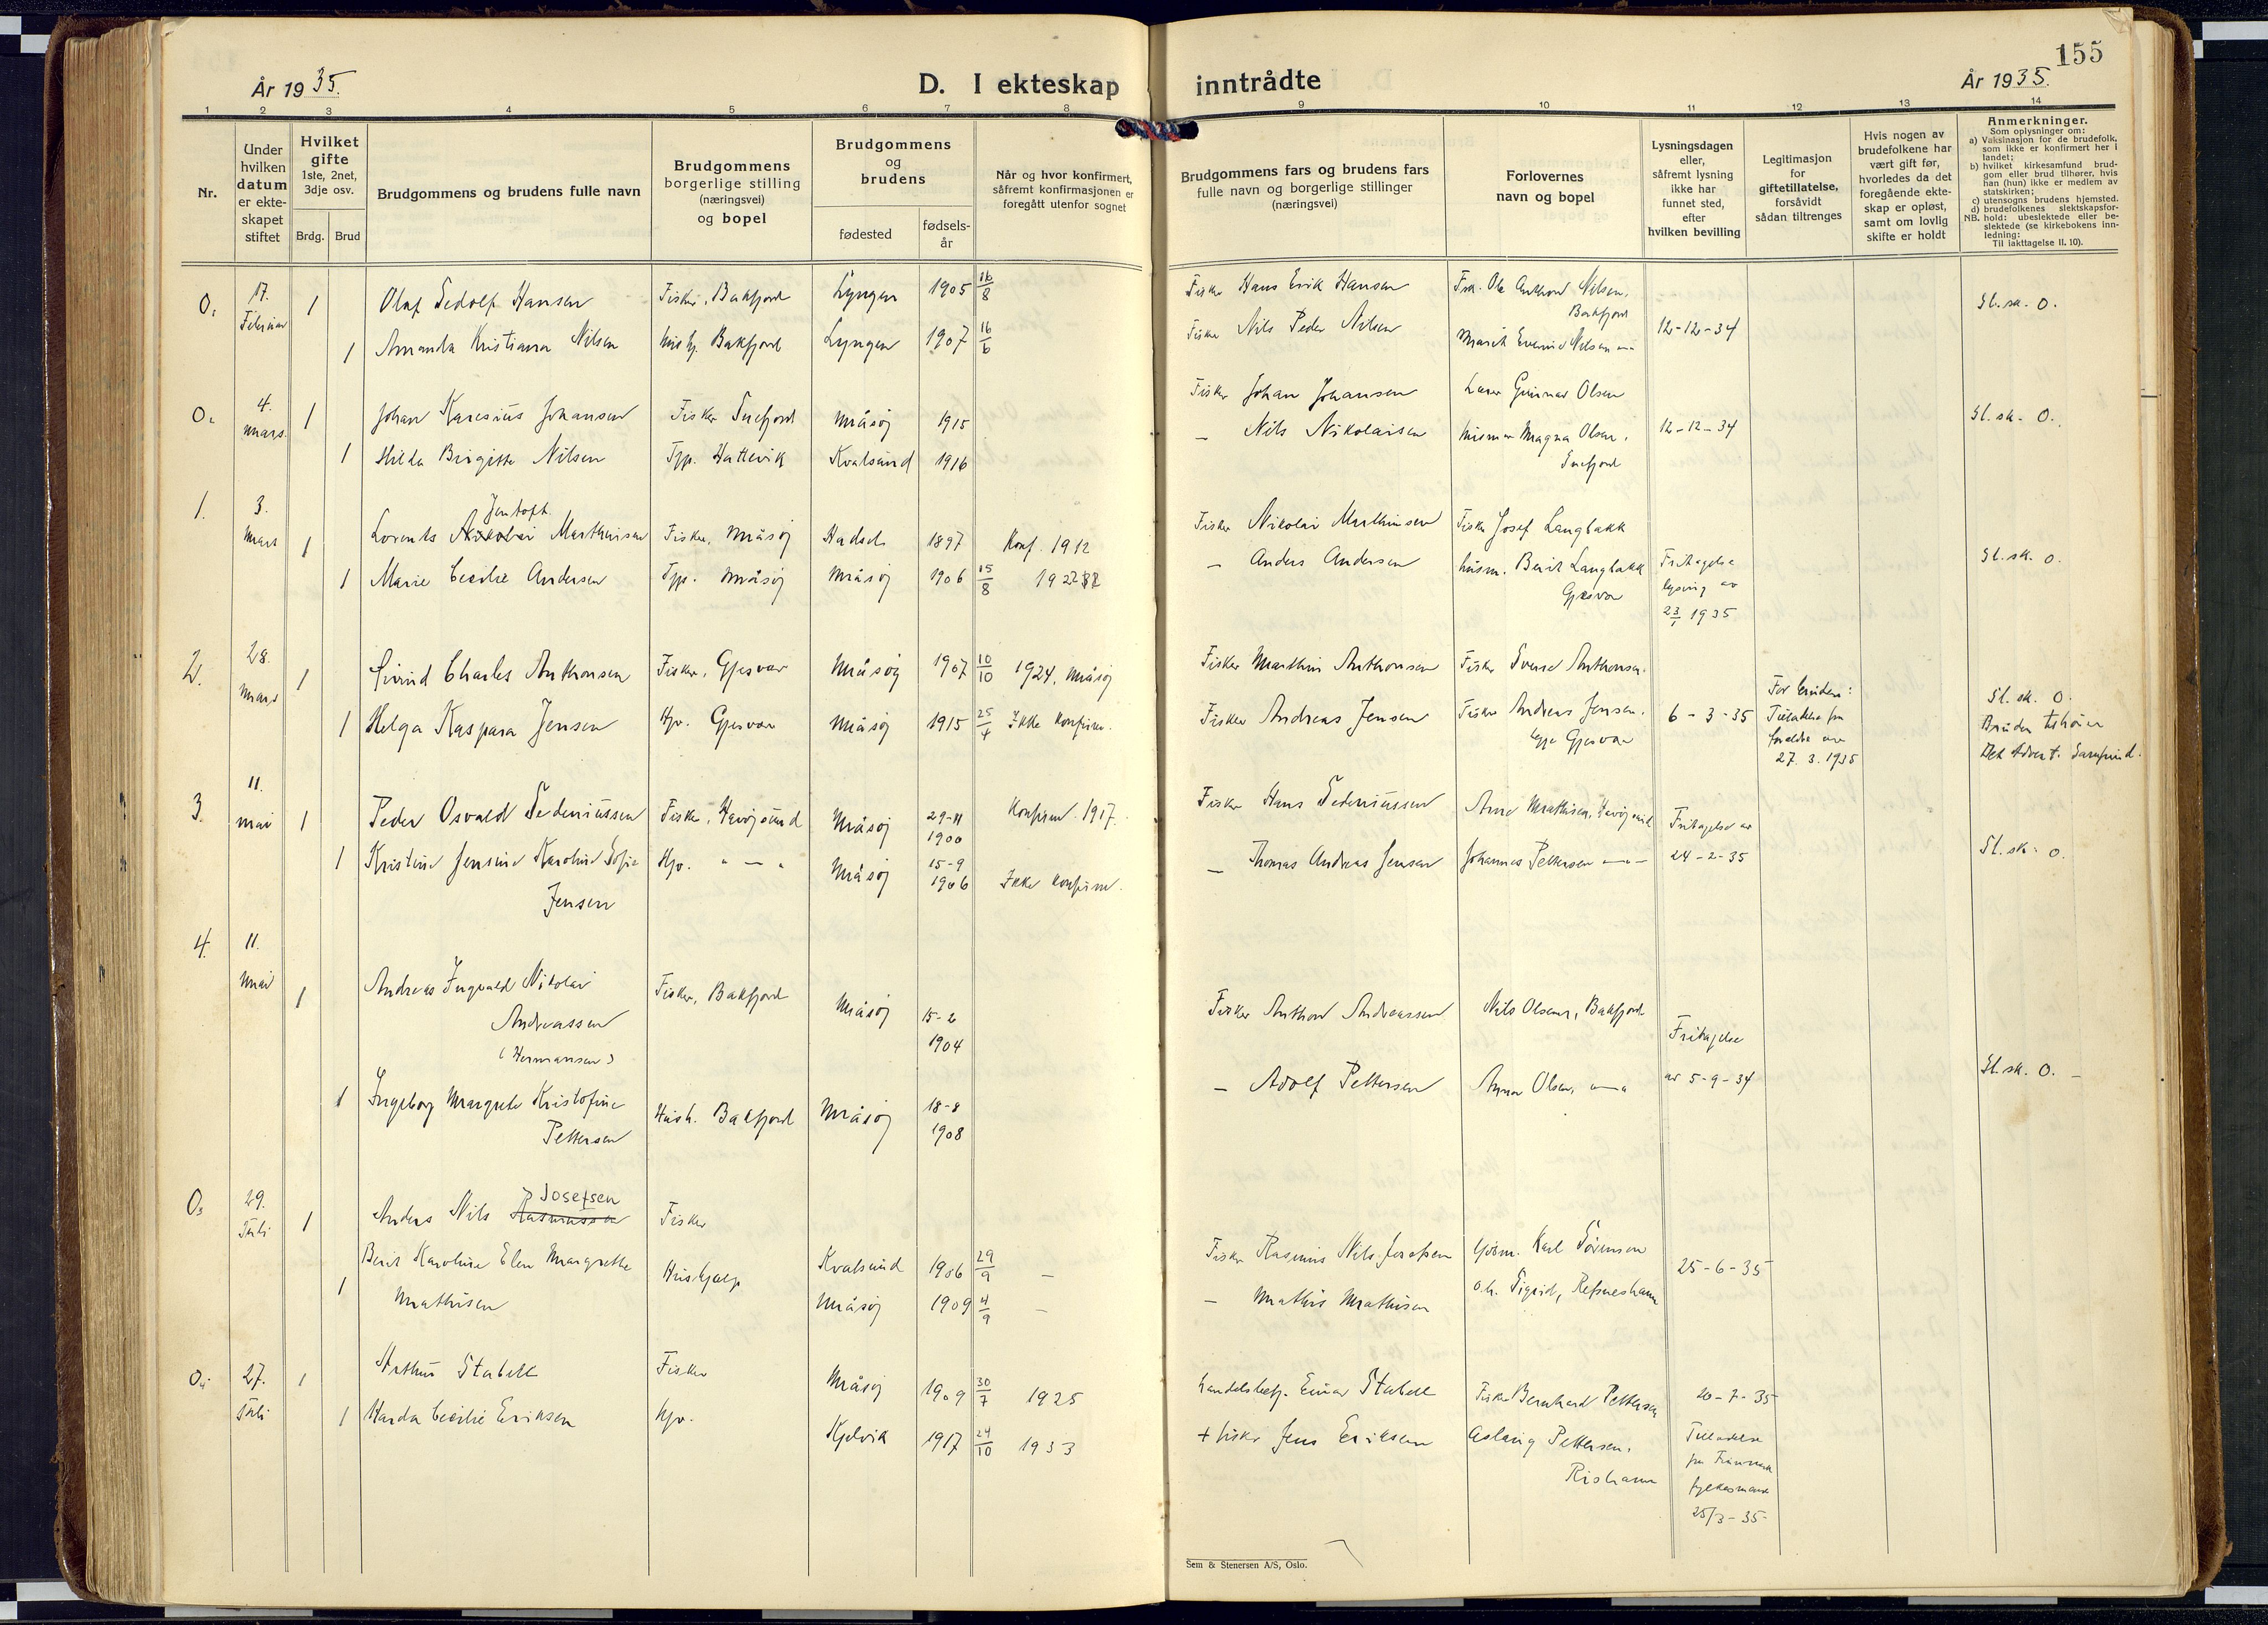 155
År 1935.
D. I ekteskap inntrådte
År 1935.
1 2 3 4 5 6 7 8 9 10 11 12 13 14
Nr.
Under hvilken datum er ekte-skapet stiftet
Hvilket gifte 1ste, 2net, 3dje osv.
Brdg. Brud
Brudgommens og brudens fulle navn
Brudgommens borgerlige stilling (næringsvei) og bopel
Brudgommens og brudens
fødested
fødsels-år
Når og hvor konfirmert, såfremt konfirmasjonen er foregått utenfor sognet
Brudgommens fars og brudens fars fulle navn og borgerlige stillinger (næringsvei)
Forlovernes navn og bopel
Lysningsdagen eller, såfremt lysning ikke har funnet sted, efter hvilken bevilling
Legitimasjon for giftetillatelse, forsåvidt sådan tiltrenges
Hvis nogen av brudefolkene har vært gift før, hvorledes da det foregående ekte-skap er opløst, samt om lovlig skifte er holdt
Anmerkninger.
Som oplysninger om:
a) Vaksinasjon for de brudefolk, som ikke er konfirmert her i landet;
b) hvilket kirkesamfund brud-gom eller brud tilhører, hvis han (hun) ikke er medlem av statskirken;
c) utensogns brudens hjemsted.
d) brudefolkenes slektskapsfor-
NB. hold: ubeslektede eller be-slektede (se kirkebokens inn-ledning:
Til iakttagelse II. 10).
17. Februar 1 Olaf Sedolf Hansen Fisker, Bakfjord Lyngen 1905 16/8 Fisker Hans Erik Hansen Fisk. Ole Anthon Nilsen, Bakfjord Sl.sk. 0.
1 Amanda Kristiana Nilsen Bakfjord Lyngen 1907 16/6 Fisker Nils Peder Nilsen Marit Nilsen 12-12-34
4. mars. 1 Johan Karesius Johansen Fisker Snefjord Måsøj 1915 Fisker Johan Johansen Gunnar Olsen Sl.sk. 0.
1 Hilda Brigitte Nilsen Tjp. Hattevik Kvalsund 1916 — Nils Nikolaisen Magna Olsen, Snefjord 12-12-34
1. 3. Mars 1 Lorents Jentoft Marthinsen Fisker, Måsøj Hadsel 1897 Konf. 1912 Fisker Nikolai Marthinsen Fisker Josef Langbakk
1 Marie Cecilie Andersen Tjp. Måsøj Måsøj 1906 15/8 — Anders Andersen husm. Berit Langbakk Gjesvær Fritagelse lysning av 23/1 1935 Sl.sk. 0.
2. 28. Mars 1 Eivind Charles Anthonsen Fisker, Gjesvær Måsøj 1907 10/10 1924, Måsøj Fisker Marthin Anthonsen Fisker Anthonsen.
1 Helga Kaspara Jensen Hjv. Gjesvær Måsøj 1915 25/4 Ikke konfirm. Fisker Andreas Jensen Fisker Andreas Jensen. Gjesvær 6-3-35 For bruden: Tillatelse fra foreldre av 27.3.1935 Sl.sk. 0. Bruden tilhører Det Advent. Samfund.
3. 11. mai 1 Peder Osvald Sedeniussen Fisker, Havøjsund Måsøj 29-11 1900 Konfirm. 1917. Fisker Hans Sedeniussen Arne Mathisen, Havøjsund Fritagelse av
1 Kristine Jensine Karoline Sofie Jensen Hjv. " — " Måsøj 15-9 1906 Ikke konfirm. — Thomas Andreas Jensen Johannes Pettersen —"— 24-2-35 Sl.sk. 0.
4. 11. Mai 1 Andreas Ingvald Nikolai Andreassen (Hermansen) Fisker, Bakfjord Måsøj 15-2 1904 Fisker Anthon Andreassen Nils Olsen, Bakfjord Fritagelse
1 Ingeborg Margrete Kristofine Pettersen Hush. Bakfjord Måsøj 18-8 1908 — Adolf Pettersen Olsen, "—" av 5-9-34 Sl.sk. 0. —
29. Juli 1 Anders Nils Rasmussen Josefsen Fisker Kvalsund 1906 29/9 — Fisker Rasmus Nils. Josefsen Karl Sørensen 25-6-35
1 Berit Karoline Elen Margrethe Mathisen Hushjelp Måsøj 1909 4/9 — — Mathis Mathisen Sigrid, Refsneshamn
27. Juli 1 Arthur Stabell Fisker Måsøj 1909 30/7 1925 Handelsbetj. Einar Stabell Fisker Bernhard Pettersen 20-7-35
1 Harda Cecilie Eriksen Hjv. Kjelvik 1917 24/10 1933 + fisker Jens Eriksen Aslaug Pettersen, Rishamn Tilladelse fra Finnmark fylkesmann 25/3-35
Sem & Stenersen A/S, Oslo.